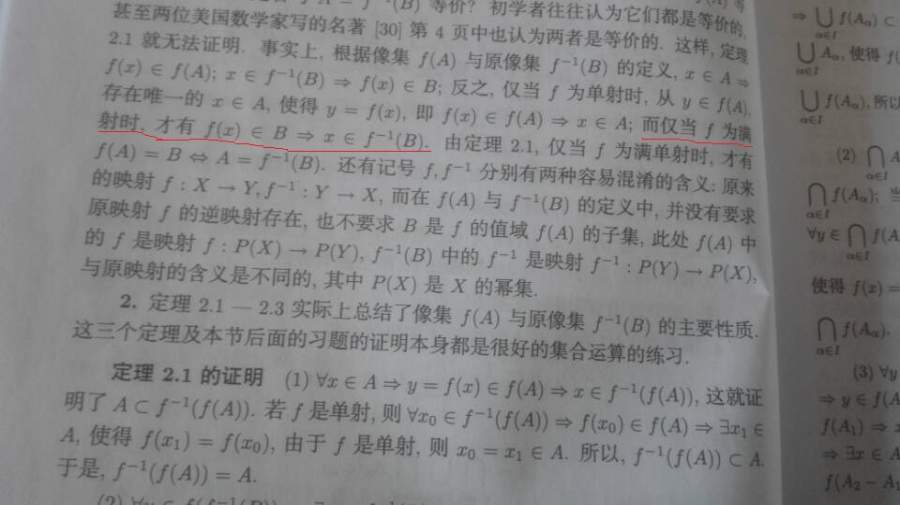 等价? 初学者往往认为它们都是等价的,
甚至两位美国数学家写的名著 [30] 第 4 页中也认为两者是等价的. 这样, 定理
2.1 就无法证明. 事实上, 根据像集 f(A) 与原像集 f⁻¹(B) 的定义, x ∈ A ⇒
f(x) ∈ f(A); x ∈ f⁻¹(B) ⇒ f(x) ∈ B; 反之, 仅当 f 为单射时, 从 y ∈ f(A),
存在唯一的 x ∈ A, 使得 y = f(x), 即 f(x) ∈ f(A) ⇒ x ∈ A; 而仅当 f 为满
射时, 才有 f(x) ∈ B ⇒ x ∈ f⁻¹(B). 由定理 2.1, 仅当 f 为满单射时, 才有
f(A) = B ⇔ A = f⁻¹(B). 还有记号 f, f⁻¹ 分别有两种容易混淆的含义: 原来
的映射 f : X → Y, f⁻¹ : Y → X, 而在 f(A) 与 f⁻¹(B) 的定义中, 并没有要求
原映射 f 的逆映射存在, 也不要求 B 是 f 的值域 f(A) 的子集, 此处 f(A) 中
的 f 是映射 f : P(X) → P(Y), f⁻¹(B) 中的 f⁻¹ 是映射 f⁻¹ : P(Y) → P(X),
与原映射的含义是不同的, 其中 P(X) 是 X 的幂集.
2. 定理 2.1 — 2.3 实际上总结了像集 f(A) 与原像集 f⁻¹(B) 的主要性质.
这三个定理及本节后面的习题的证明本身都是很好的集合运算的练习.
定理 2.1 的证明 (1) ∀x ∈ A ⇒ y = f(x) ∈ f(A) ⇒ x ∈ f⁻¹(f(A)), 这就证
明了 A ⊂ f⁻¹(f(A)). 若 f 是单射, 则 ∀x₀ ∈ f⁻¹(f(A)) ⇒ f(x₀) ∈ f(A) ⇒ ∃x₁ ∈
A, 使得 f(x₁) = f(x₀), 由于 f 是单射, 则 x₀ = x₁ ∈ A. 所以, f⁻¹(f(A)) ⊂ A.
于是, f⁻¹(f(A)) = A.
⇒ ⋃ f(Aα) ⊂
α∈I
⋃ Aα, 使得
α∈I
⋃ f(Aα), 所以
α∈I
(2) ⋂
α∈I
⋂ f(Aα);
α∈I
∀y ∈ ⋂ f(A
α∈I
使得 f(x) =
⋂ f(Aα).
α∈I
(3) ∀y
⇒ y ∈ f(A
f(A₁) ⇒
⇒ ∃x ∈ A
f(A₂ − A₁